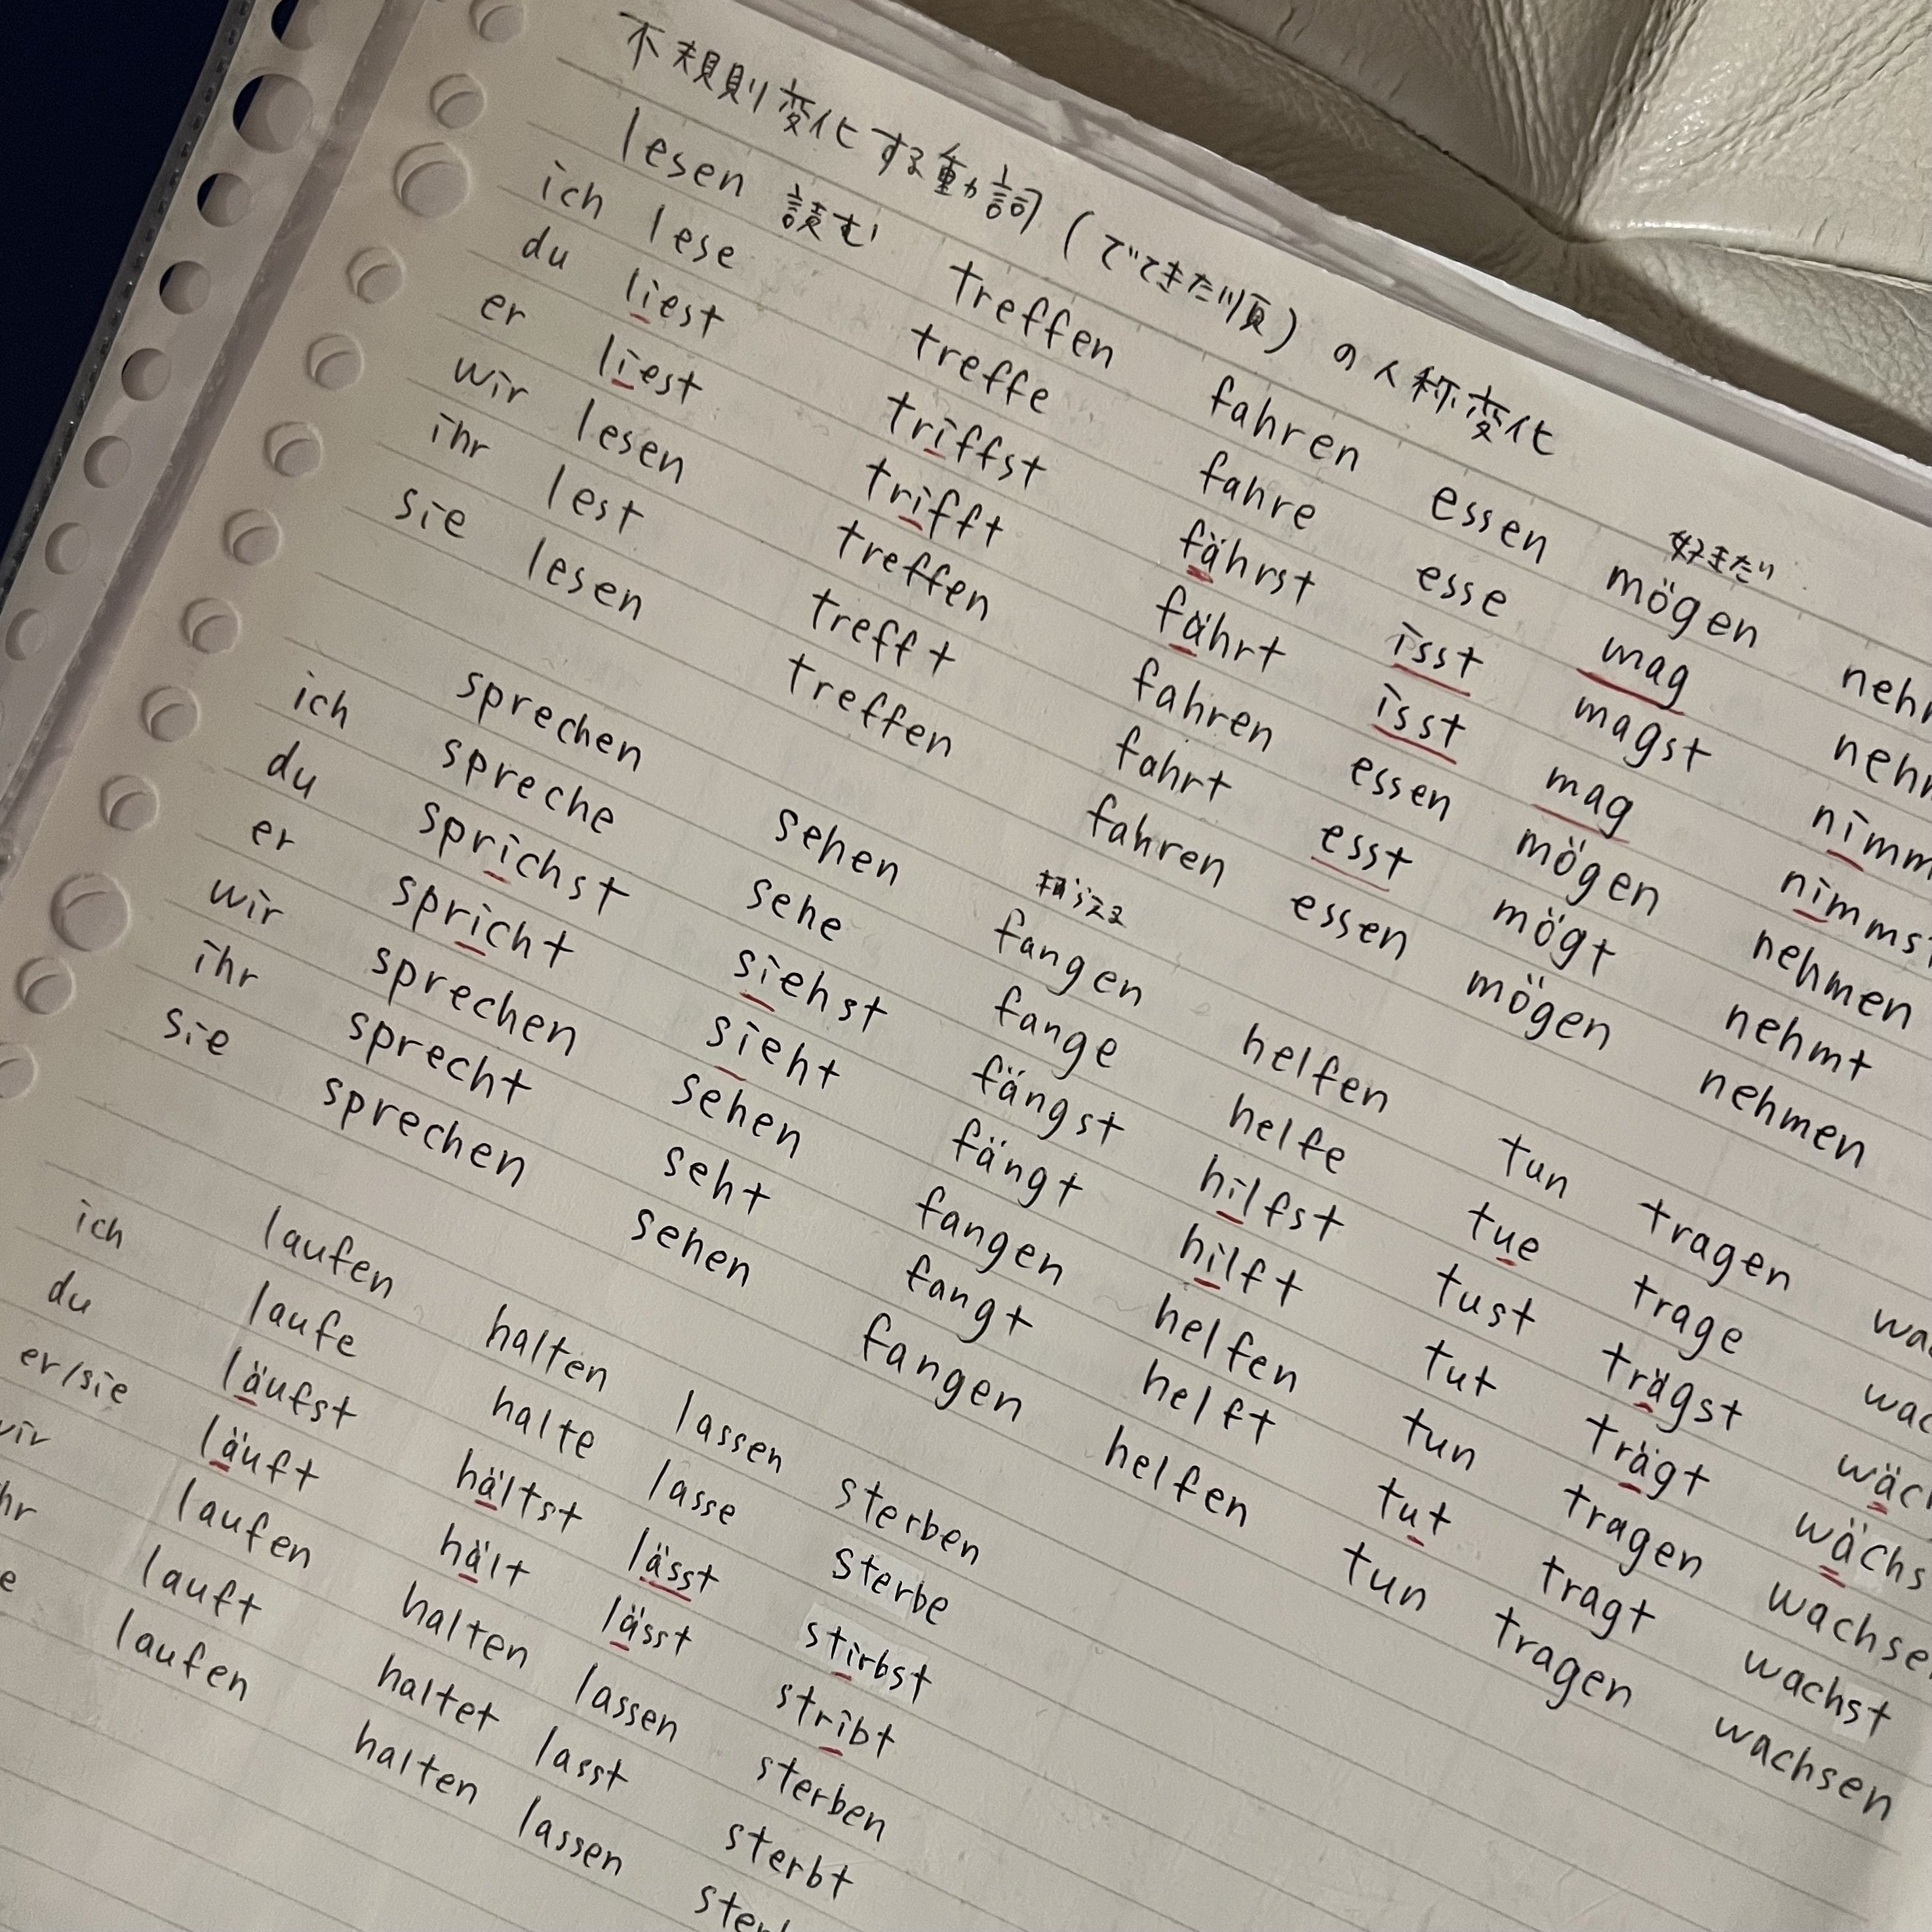 不規則変化する動詞(でてきた順)の人称変化
好きだ
lesen 読む treffen fahren essen mögen
ich lese treffe fahre esse mag
du liest triffst fährst isst magst
er liest trifft fährt isst mag
wir lesen treffen fahren essen mögen nehmen
ihr lest trefft fahrt esst mögt nehmt
sie lesen treffen fahren essen mögen nehmen
捕らえる
sprechen sehen fangen helfen tun tragen
ich spreche sehe fange helfe tue trage
du sprichst siehst fängst hilfst tust trägst
er spricht sieht fängt hilft tut trägt
wir sprechen sehen fangen helfen tun tragen
ihr sprecht seht fangt helft tut tragt wachst
sie sprechen sehen fangen helfen tun tragen wachsen
laufen halten lassen sterben
ich laufe halte lasse sterbe
du läufst hältst lässt stirbst
er/sie läuft hält lässt stribt
laufen halten lassen sterben
lauft haltet lasst sterbt
laufen halten lassen